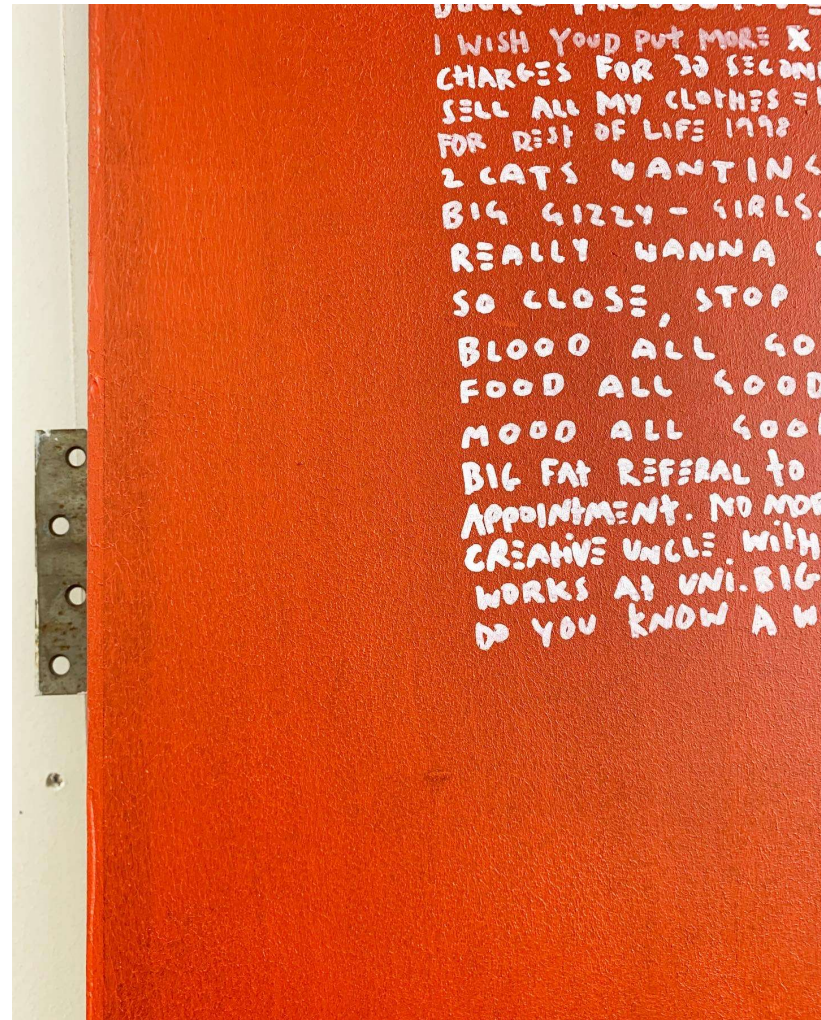 I WISH YOUD PUT MORE X
CHARGES FOR 30 SECON
SELL ALL MY CLOTHES =
FOR REST OF LIFE 1998
2 CATS WANTING
BIG GIZZY - GIRLS
REALLY WANNA
SO CLOSE, STOP
BLOOD ALL GO
FOOD ALL GOOD
MOOD ALL GOO
BIG FAT REFERAL TO
APPOINTMENT. NO MOR
CREATIVE UNCLE WITH
WORKS AT UNI. BIG
DO YOU KNOW A W